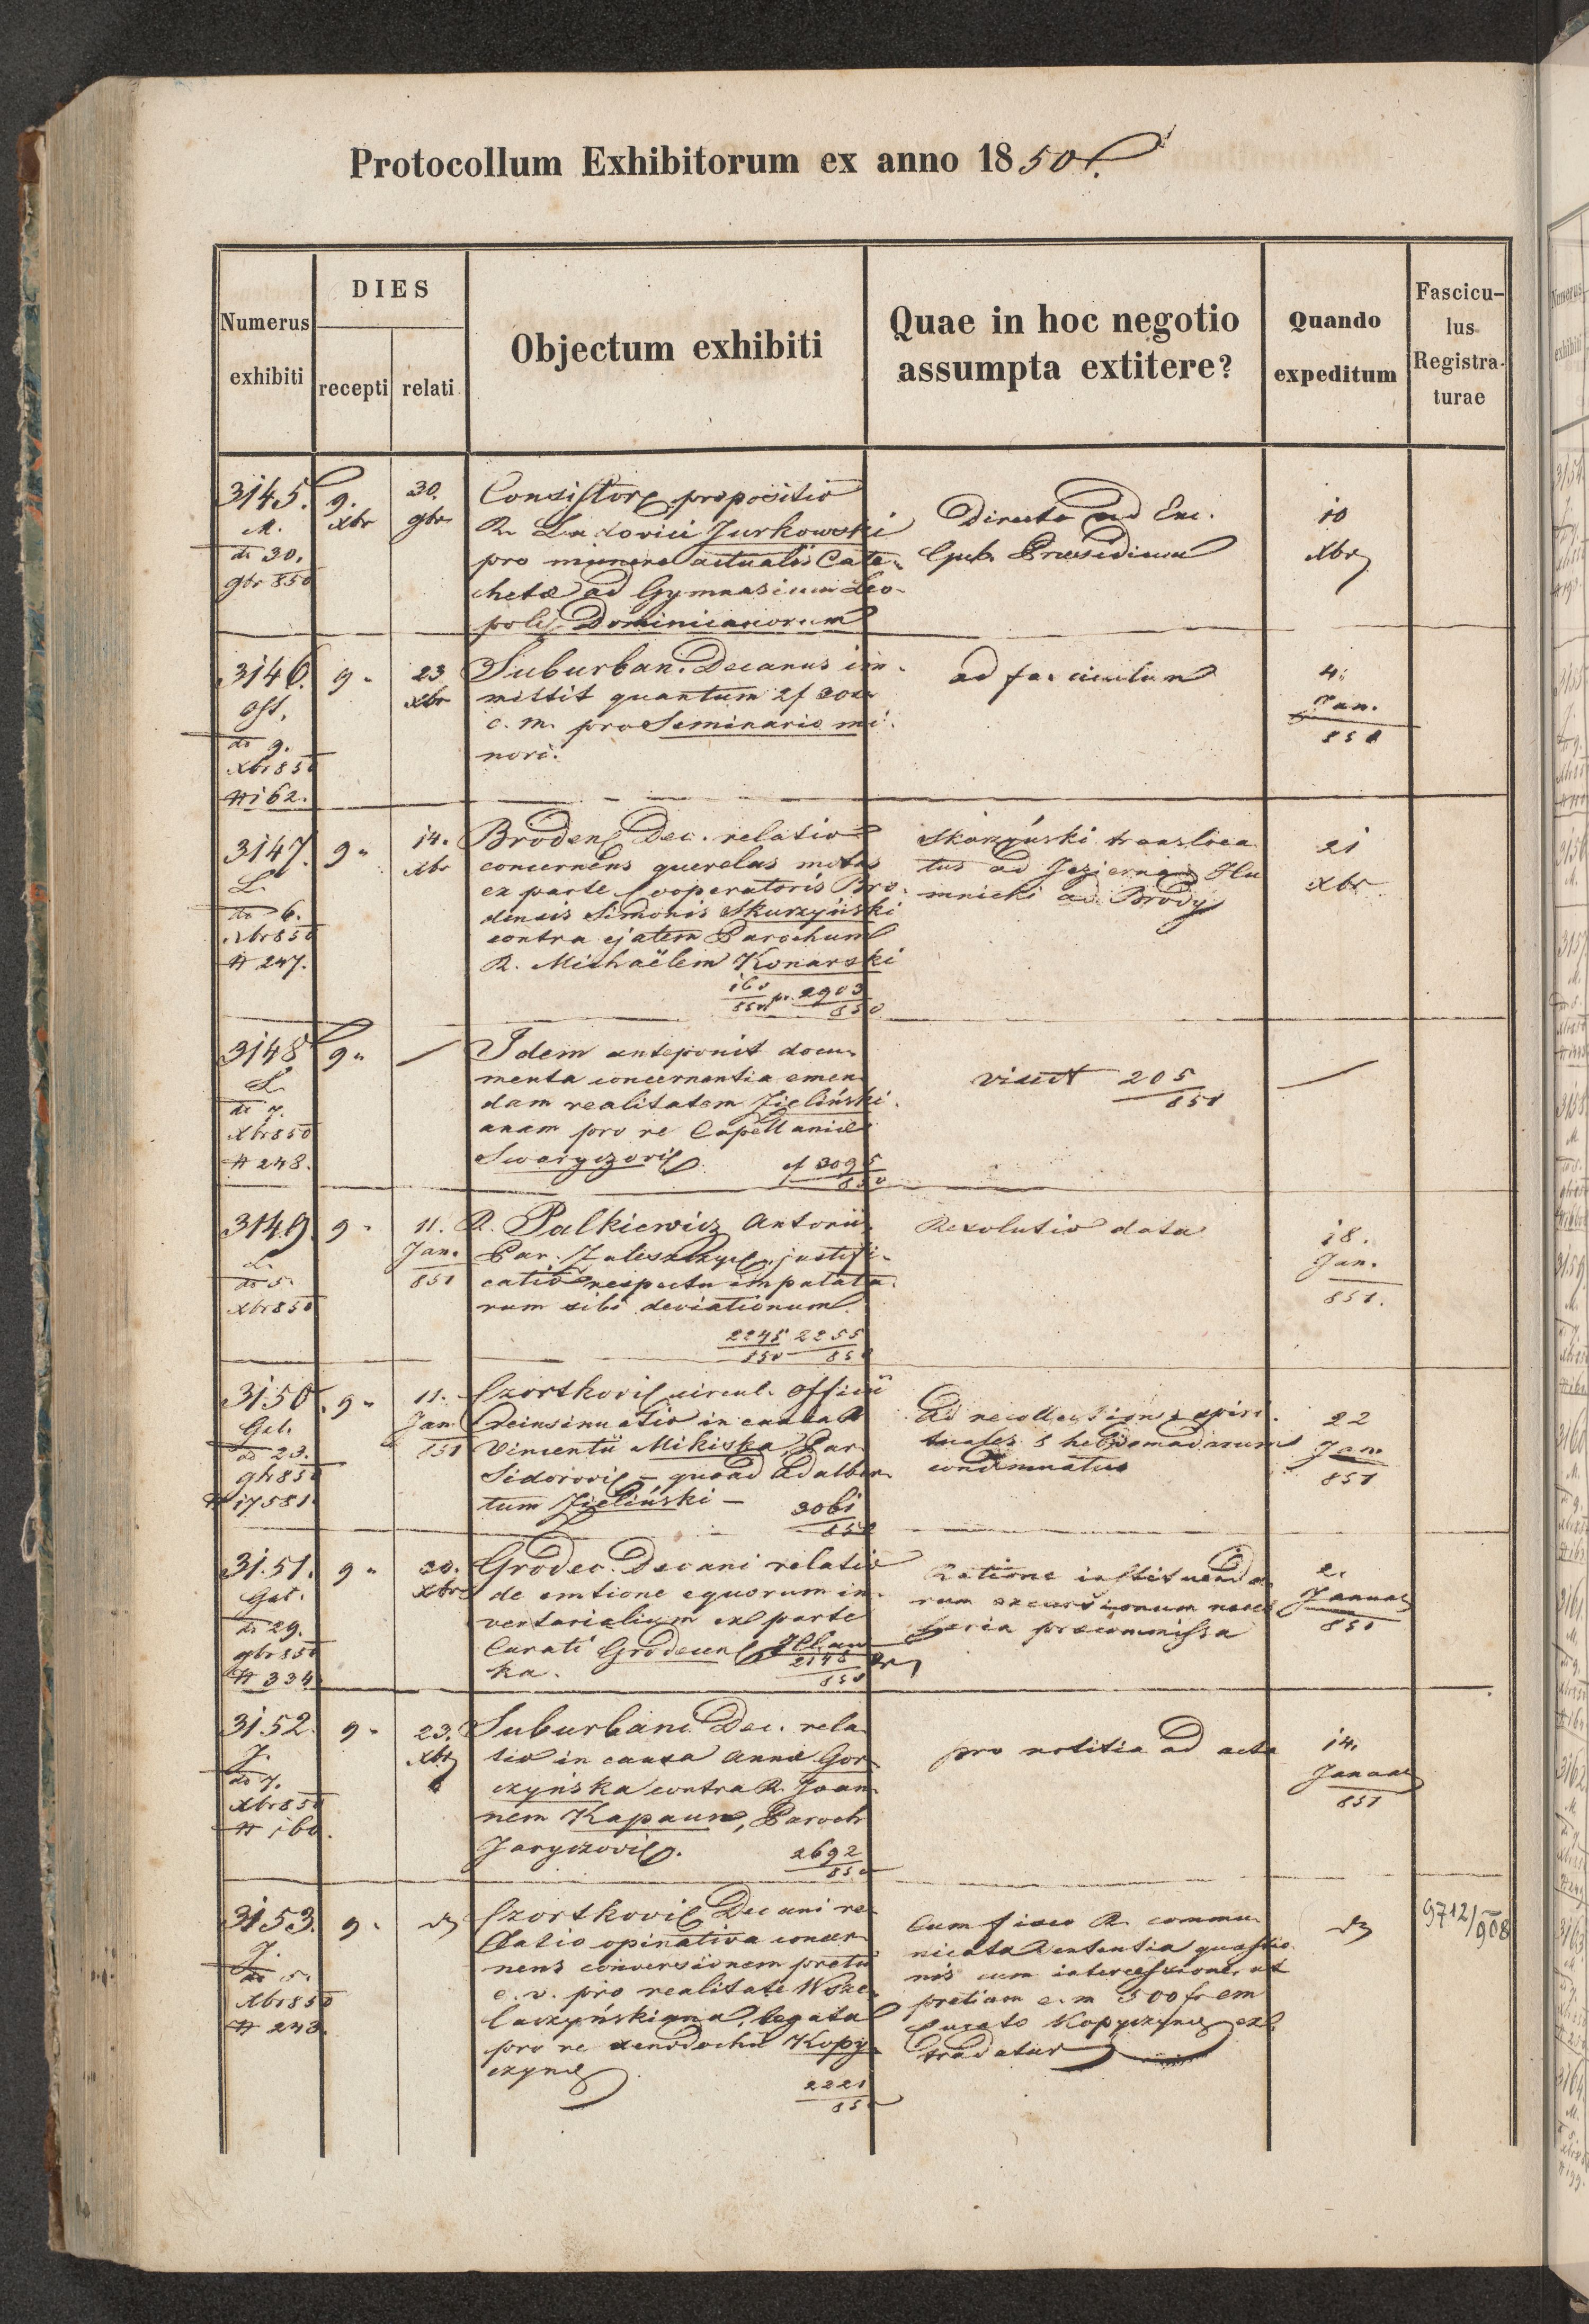 Protocollum Exhibitorum ex anno 1850.
Numerus
exhibiti
DIES
recepti
relati
Objectum exhibiti
Quae in hoc negotio
assumpta extitere?
Quando
expeditum
Fascicu-
lus
Registra-
turae
3145.
M.
do 30.
9br 850
9.
Xbr
30.
9br
propositio
R. Ludovici Jurkowski
pro munere actualis Cate-
chetæ ad Gymnasium Leo-
pol. Dominicanorum
Directe ad Exc.
Gub. Præsidium
10
Xbr
3146.
do 9.
Xbr 850
# 162.
9.
23
Xbr
Suburban. Decanus im-
mittit quantum 2f
c. m. pro Seminario mi-
nori.
ad fasciculum
4.
Jan.
851
3147.
L.
do 6.
Xbr 850
# 247.
9.
14.
Xbr
Broden. Dec. relatio
concernens querelas motas
ex parte Cooperatoris Bro-
densis Simonis Skurzyński
contra ejatem Parochum
R. Michaëlem Konarski
160/850 pr. 2903/850
Skurzyński transloca
tus ad Jezierna, Hu
mnicki ad Brody
21
Xbr
3148
L.
do 7.
Xbr 850
# 248.
9.
Idem anteponit docu-
menta concernentia emen-
dam realitatem Zieliński-
anam pro re Capellaniæ
Swaryczov.
cf 3095/850
videat 205/851
3149.
L.
do 5.
Xbr 850
9.
11.
Jan.
851
R. Palkiewicz Antonii
Par. justifi-
catio respectu imputata-
rum sibi deviationum
2245/850 2255/850
Resolutio data
18.
Jan.
851.
3150.
Gub.
do 23.
9br 850
# 17581.
9.
11.
Jan.
851
Czortkovi. circul. Officii
reinsinuatio in causa R.
Vincentii Mikiska, Par.
Sidorovi. – quoad Adalber-
tum Zieliński –
3061/850
Ad recollectiones spiri-
tuales 8 hebdomadarum
condemnatus
22
Jan.
851
3151.
Gal.
do 29.
9br 850
# 334
9.
30.
Xbr
Grodec. Decani relatio
de emtione equorum in-
ventarialium ex parte
Curati Grodecen.
ka.
2148/850
Ratione instituenda-
rum excursionum neces
saria præcommissa
2.
Januar
851
3152.
J.
do 7.
Xbr 850
# 160.
9.
23.
Xbr
Suburbani Dec. rela-
tio in causa Annæ Gor-
czyńska contra R. Joan-
nem Kapaun, Paroch
Jaryczovi.
2692/850
pro notitia ad acta
14.
Januar
851
3153.
J.
do 5.
Xbr 850
# 243.
9.
Czortkovi. Decani re-
latio opinativa concer-
nens conversionem pretii
e. v. pro realitate
legata
pro re xenodochii Kopy-
czyne
2221/850
Cum fisco R. commu-
nicata sententia quæstio-
nis cum intercessione, ut
pretium c. m 500 fr em
Curato Kopyczyne ex-
tradatur
9712/908